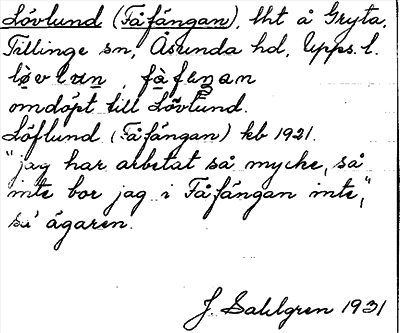 Lövlund (Fåfängan), lht å Gryta,
Tillinge sn, Åsunda hd, Upps. l.
omdöpt till Lövlund.
Löflund (Fåfängan) kb 1921.
"jag har arbetat så mycke, så
inte bor jag i Fåfängan inte,"
sa' ägaren.
J. Sahlgren 1931